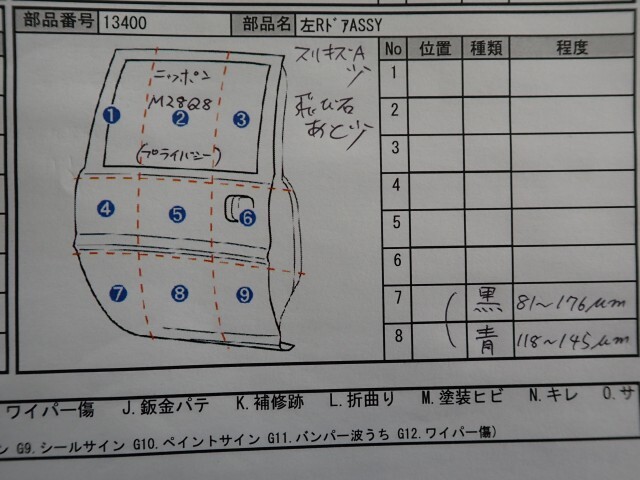 部品番号 13400 部品名 左RドアASSY
No 位置 種類 程度
スリキズA
ニッポン
M28Q8
(プライバシー)
飛び石
あと
1
2
3
4
5
6
7
8
9
1
2
3
4
5
6
7 黒 81~176μm
8 青 118~145μm
ワイパー傷 J.鈑金パテ K.補修跡 L.折曲り M.塗装ヒビ N.キレ O.サ
ン G9.シールサイン G10.ペイントサイン G11.バンパー波うち G12.ワイパー傷)